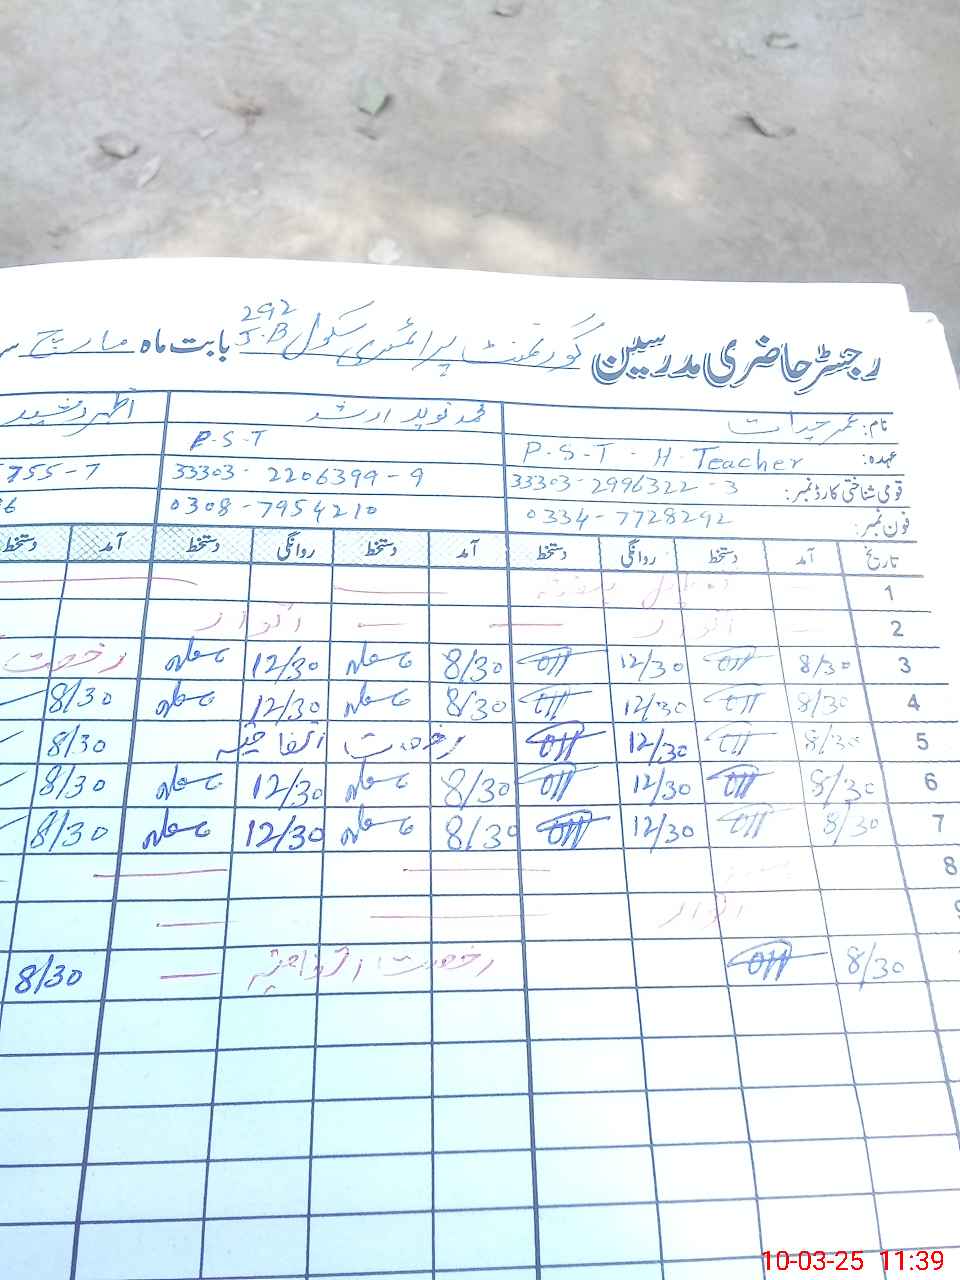 رجسٹر حاضری مدرسین گورنمنٹ پرائمری سکول 292 J.B بابت ماہ مارچ
نام: عمر حیات محمد نوید ارشد اظہر رشید
عہدہ: P.S.T - H. Teacher P.S.T
قومی شناختی کارڈ نمبر: 33303-2996322-3 33303-2206399-9 755-7
فون نمبر: 0334-7728292 0308-7954210 6
تاریخ آمد دستخط روانگی دستخط آمد دستخط روانگی دستخط آمد دستخط
1
2 اتوار اتوار
3 8/30 12/30 8/30 12/30 رخصت
4 8/30 12/30 8/30 12/30 8/30
5 8/30 12/30 رخصت اتفاقیہ 8/30
6 8/30 12/30 8/30 12/30 8/30
7 8/30 12/30 8/30 12/30 8/30
8
9 اتوار
8/30 رخصت اتفاقیہ 8/30
10-03-25 11:39